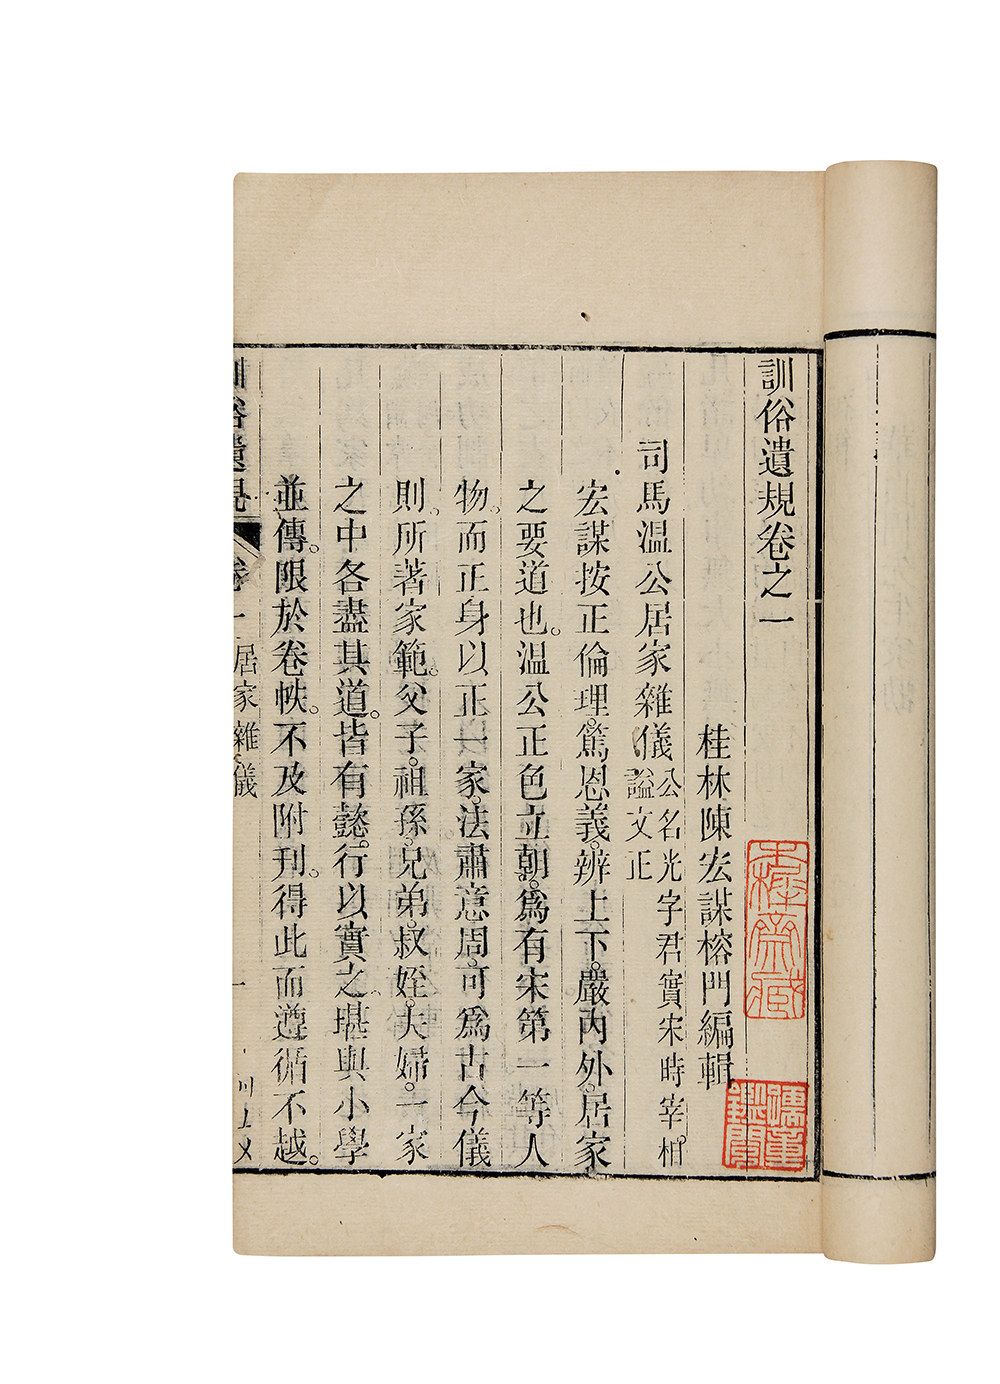 訓俗遺規卷之一
桂林陳宏謀榕門編輯
司馬温公居家雜儀
公名光字君實宋時宰相
謚文正
宏謀按正倫理。篤恩義。辨上下。嚴內外。居家
之要道也。温公正色立朝。爲有宋第一等人
物。而正身以正一家。法肅意周。可爲古今儀
則。所著家範。父子。祖孫。兄弟。叔姪。夫婦。一家
之中各盡其道。皆有懿行以實之。堪與小學
並傳。限於卷帙。不及附刊。得此而遵循不越。
訓俗遺規
卷一
居家雜儀
一